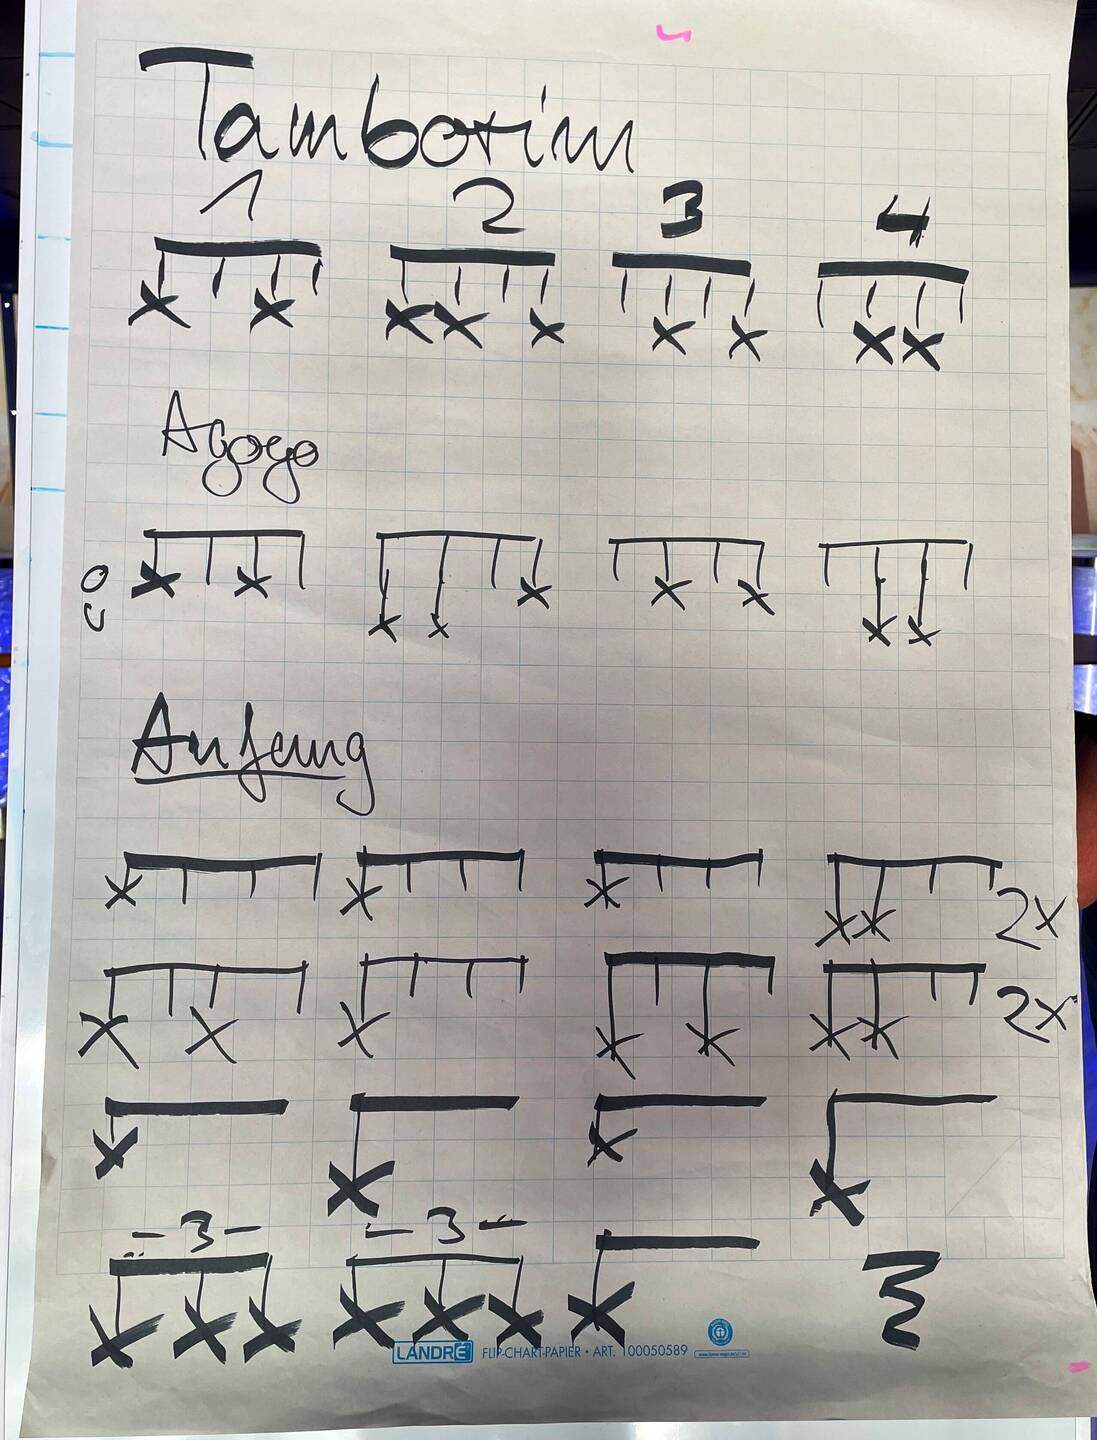 Tamborim
1 2 3 4
X X X X X X X X X
Agogo
X X X X X
X X X X
Anfang
X X X X X 2x
X X X X X X X 2x
X X X X
-3- -3-
X X X X X X X
LANDRÉ FLIP-CHART-PAPIER • ART. 100050589